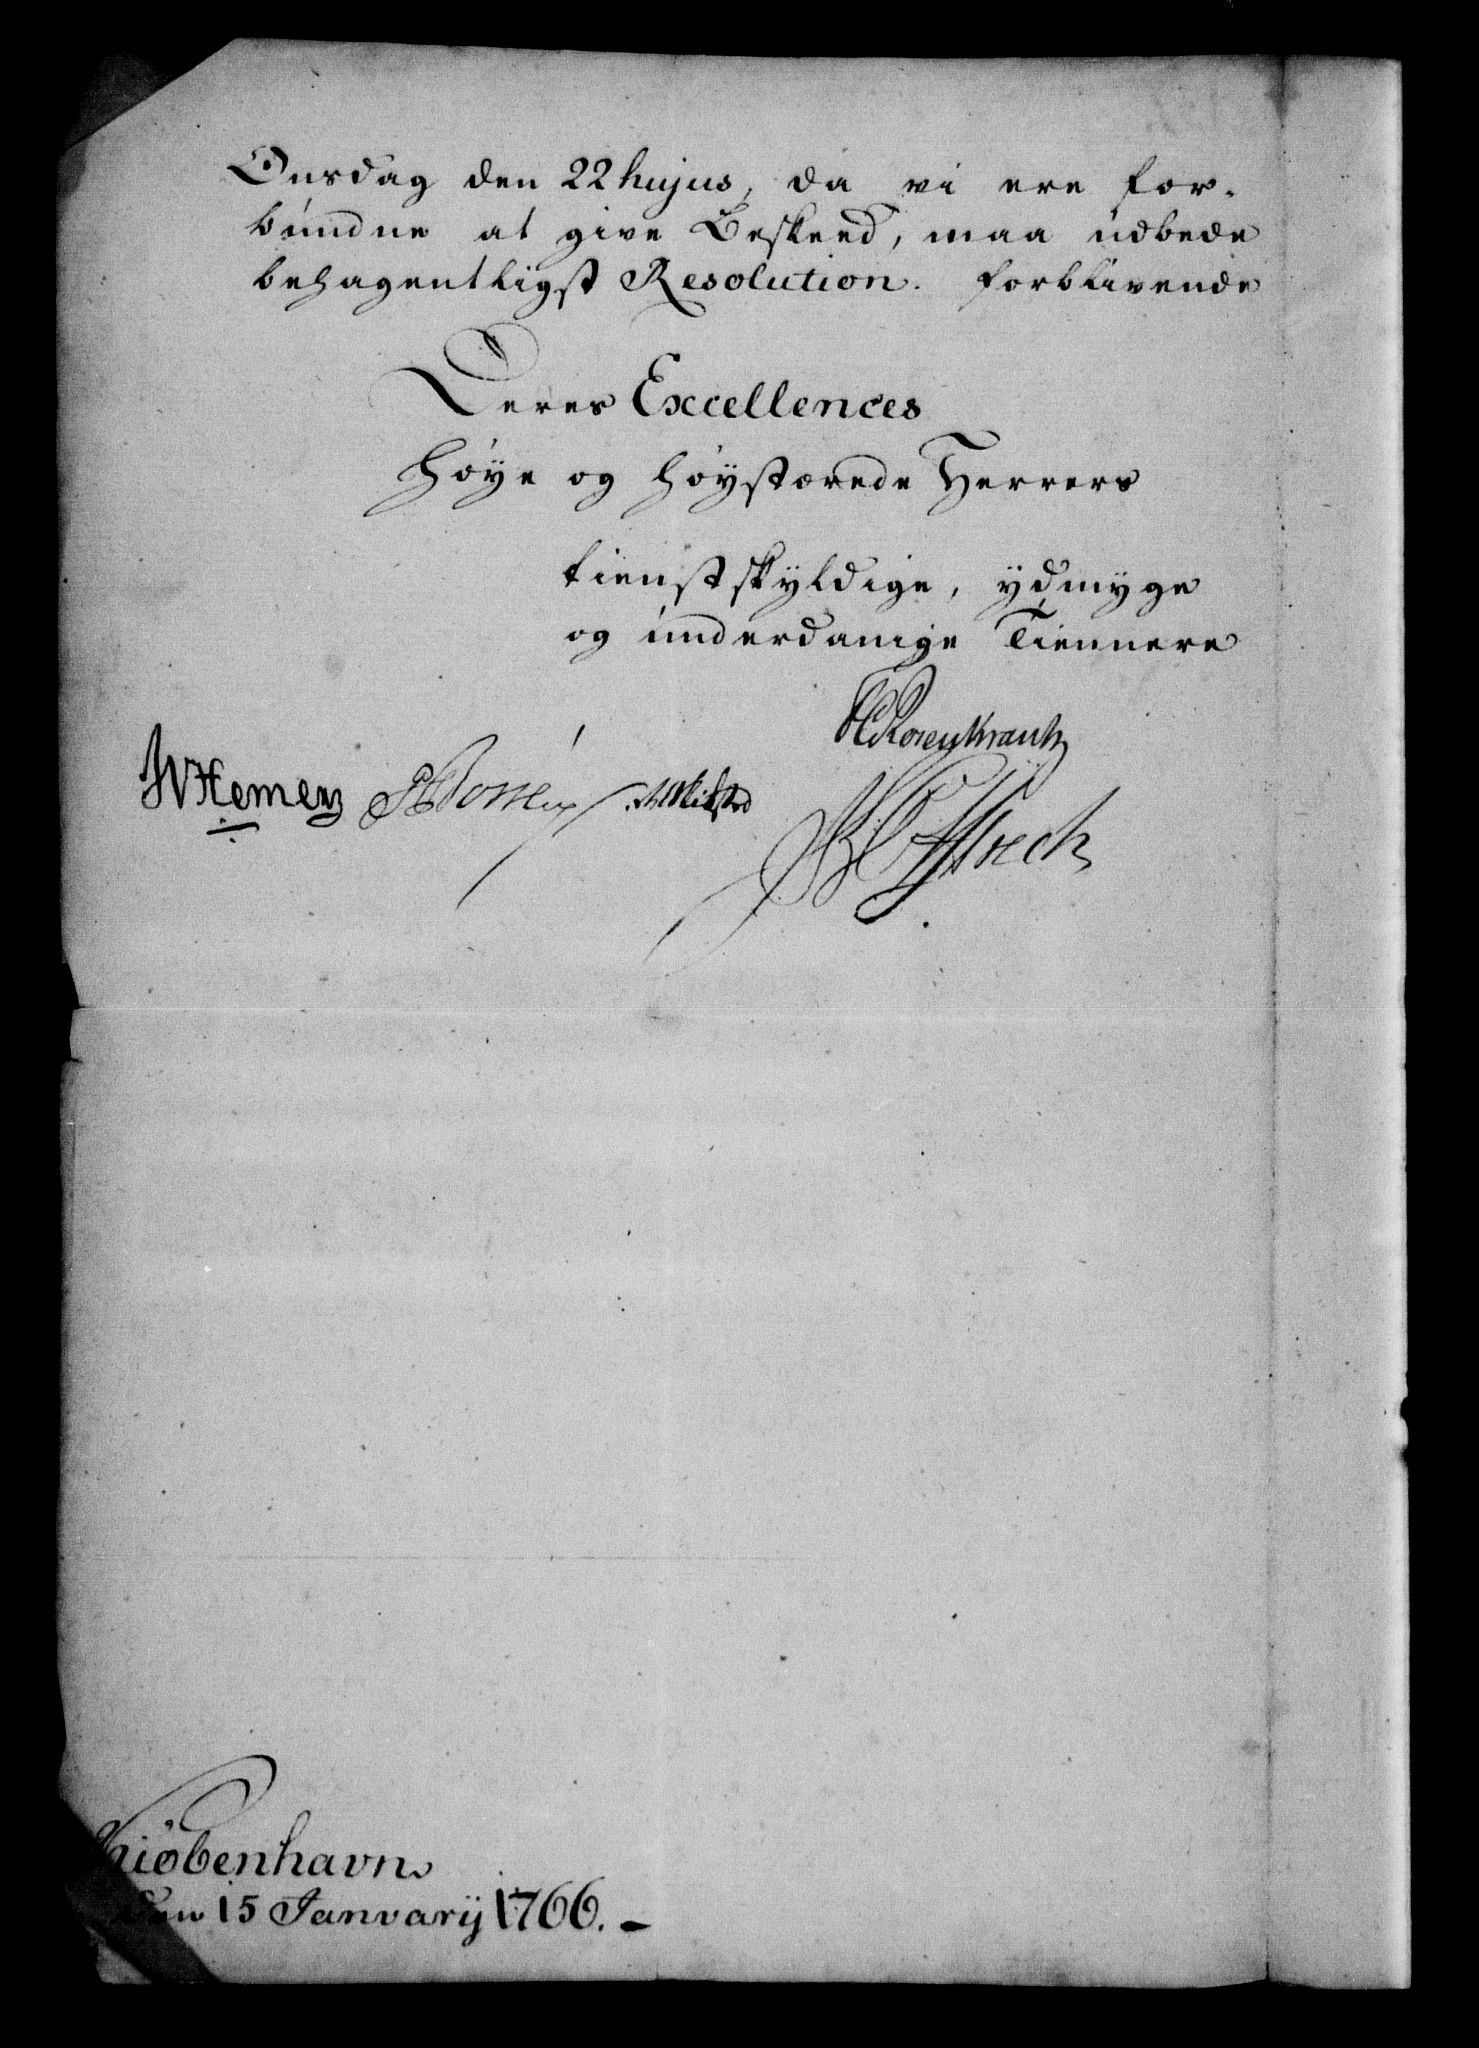 Onsdag den 22 hujus, da vi ere for-
bundne at give Beskeed, maa udbede
behagentligst Resolution. forblivende
Deres Excellences
Høye og høystærede Herrers
tienstskyldige, ydmyge
og underdanige Tiennere
Rosenkrantz
Hemert
Kiöbenhavn
den 15 Janvarij 1766. -